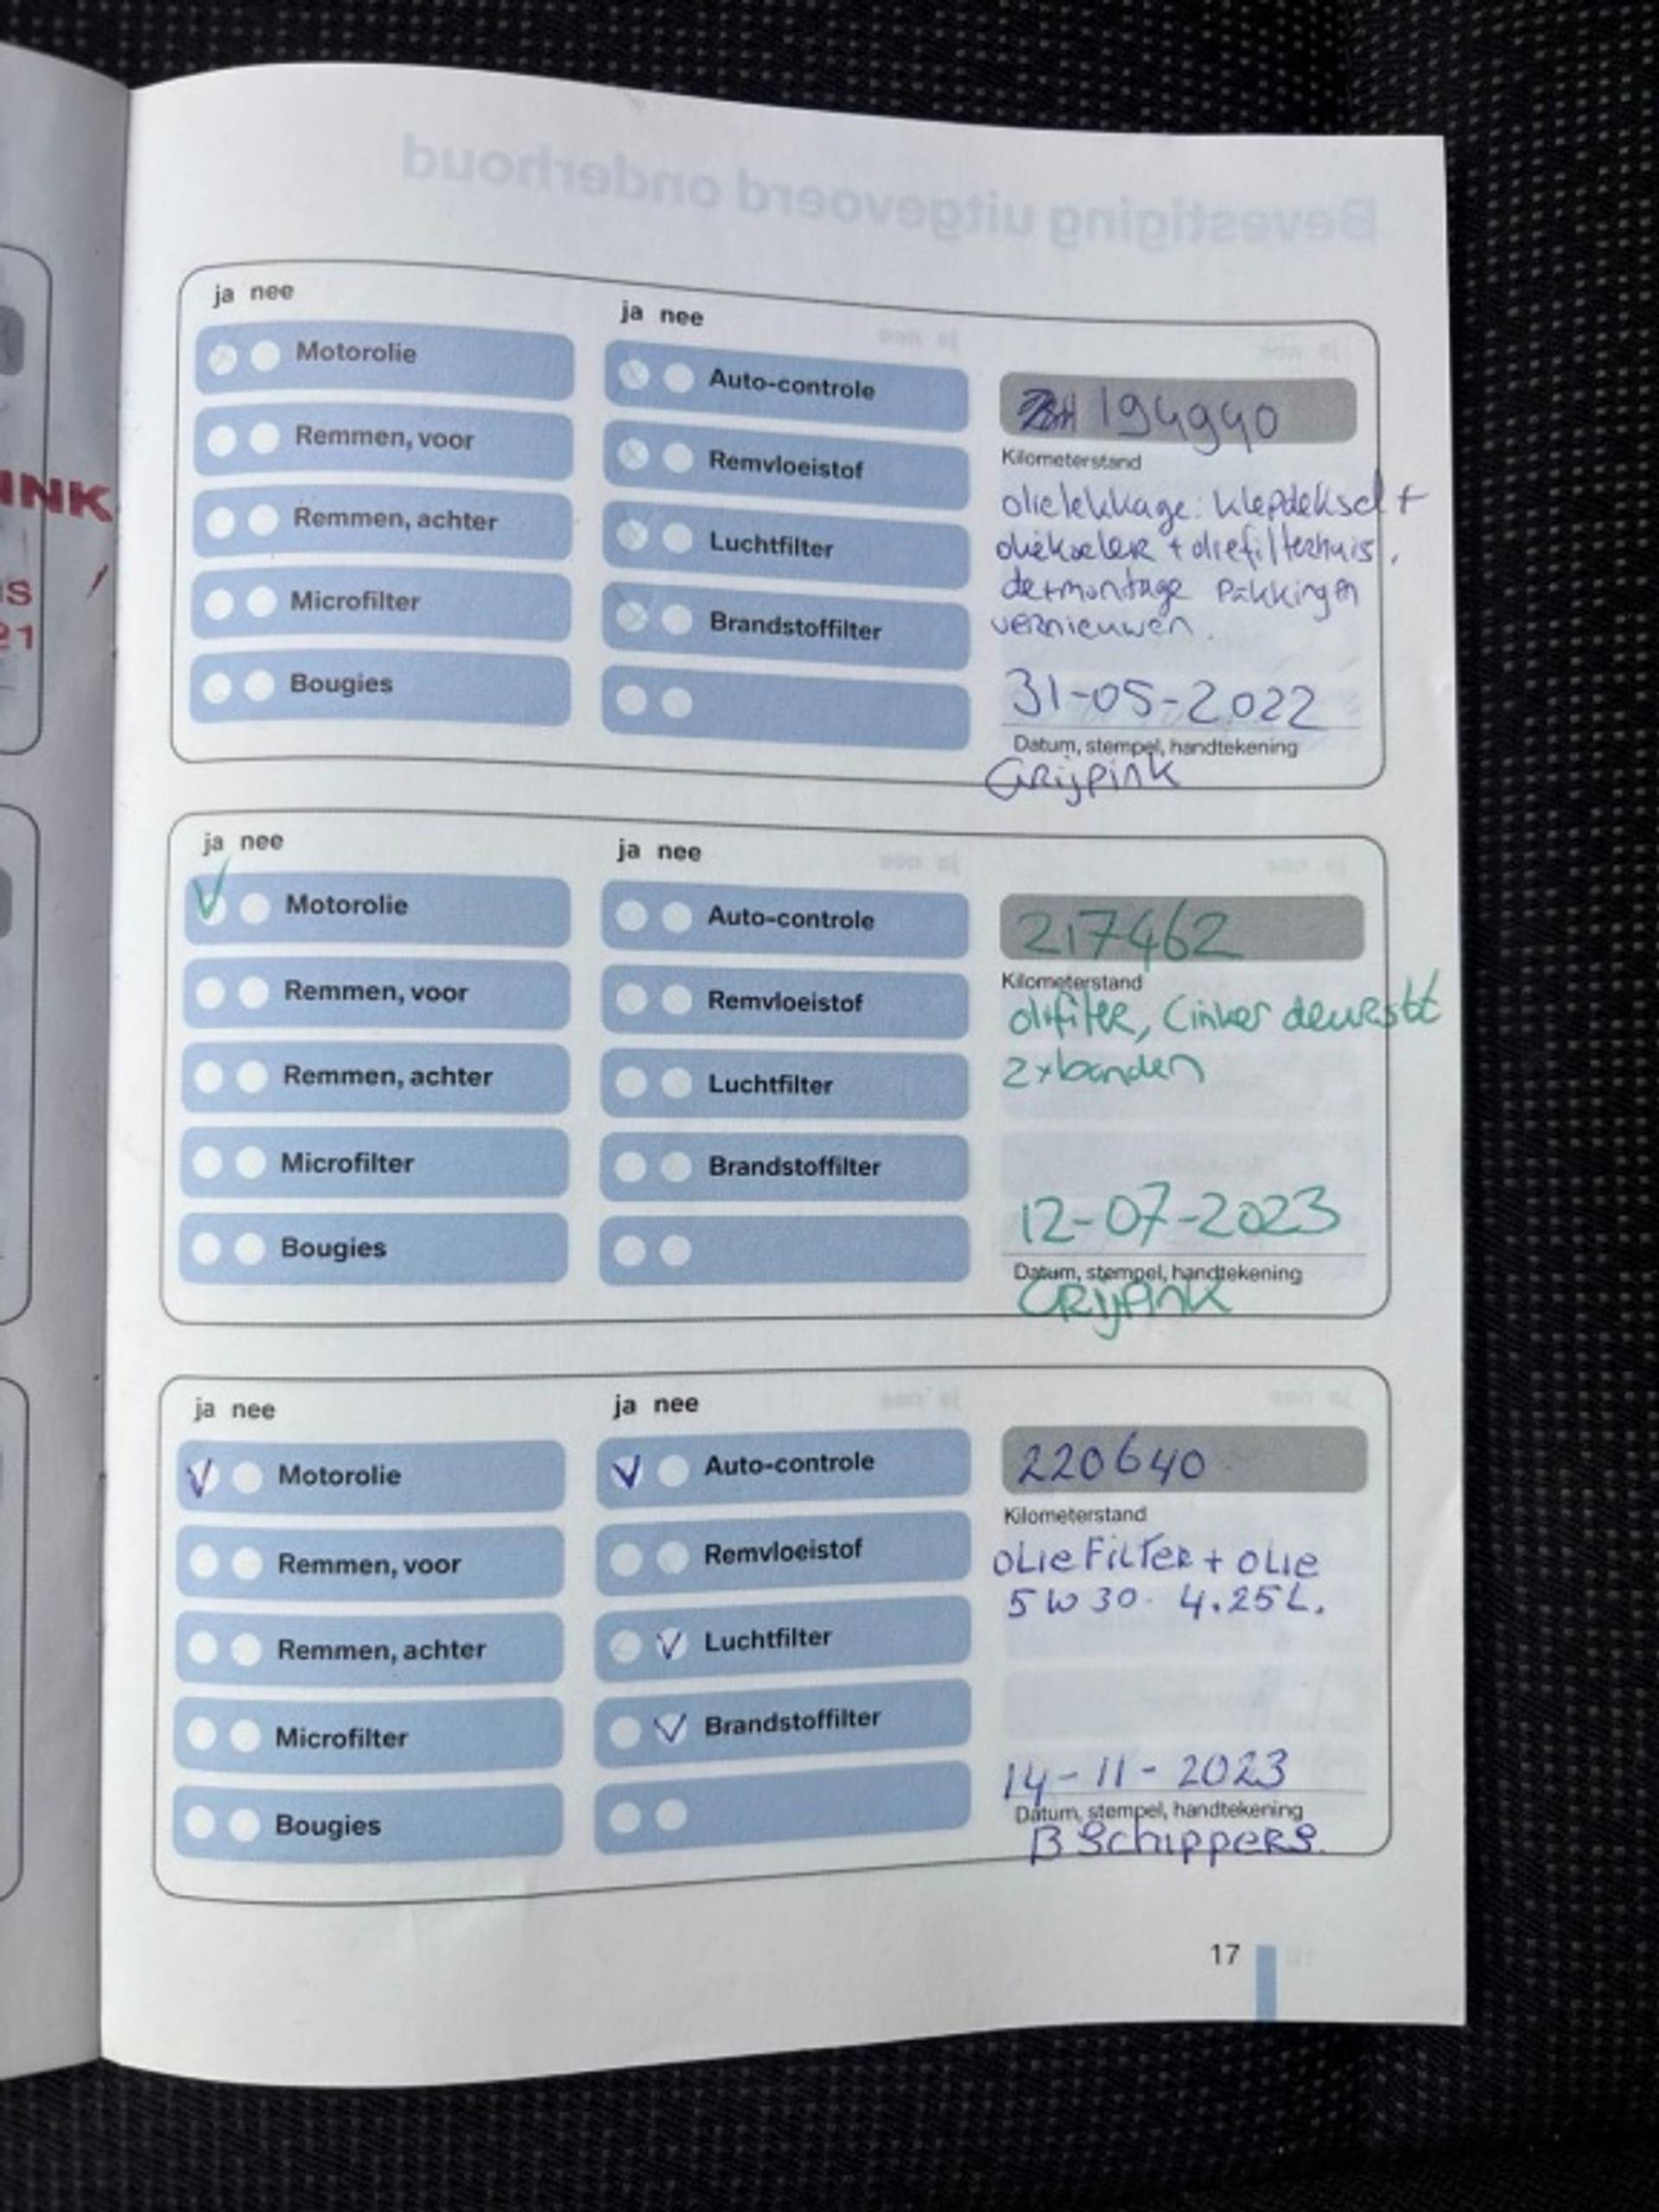 INK
IS
21
Bevestiging uitgevoerd onderhoud
ja nee
Motorolie
Remmen, voor
Remmen, achter
Microfilter
Bougies
ja nee
Auto-controle
Remvloeistof
Luchtfilter
Brandstoffilter
194940
Kilometerstand
olielekkage: klepdeksel +
oliekoeler + oliefilterhuis.
de+montage Pakkingen
vernieuwen.
31-05-2022
Datum, stempel, handtekening
Grijpink
ja nee
Motorolie
Remmen, voor
Remmen, achter
Microfilter
Bougies
ja nee
Auto-controle
Remvloeistof
Luchtfilter
Brandstoffilter
217462
Kilometerstand
olifilter, Linker
2x banden
12-07-2023
Datum, stempel, handtekening
Grijpink
ja nee
Motorolie
Remmen, voor
Remmen, achter
Microfilter
Bougies
ja nee
Auto-controle
Remvloeistof
Luchtfilter
Brandstoffilter
220640
Kilometerstand
OLIE FILTER + OLIE
5W30. 4.25L.
14-11-2023
Datum, stempel, handtekening
B Schippers.
17